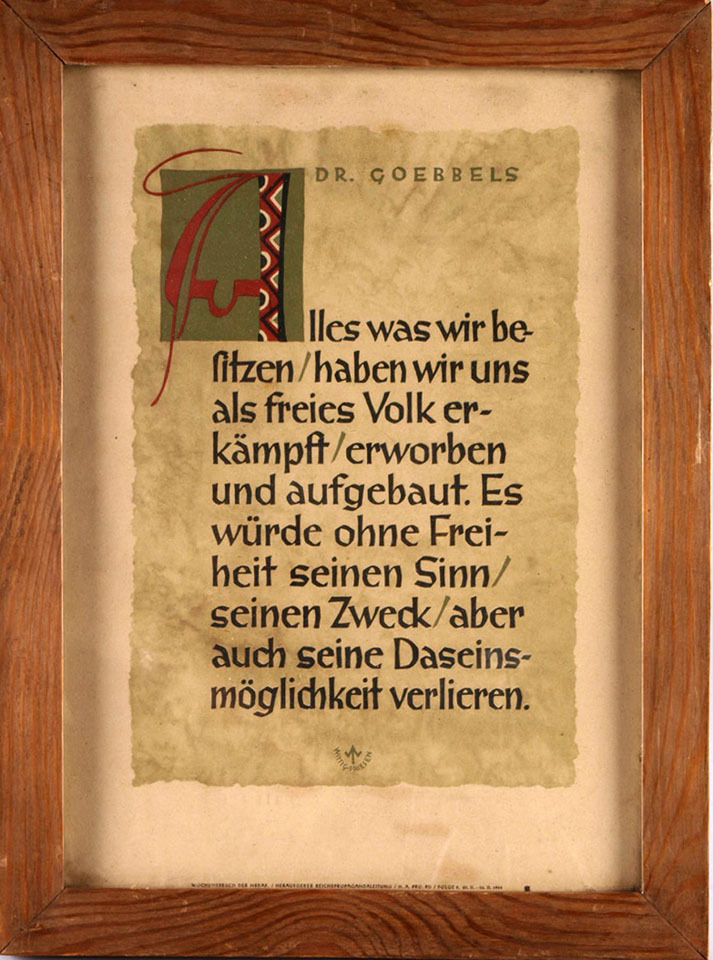 DR. GOEBBELS
Alles was wir be-
sitzen/haben wir uns
als freies Volk er-
kämpft/erworben
und aufgebaut. Es
würde ohne Frei-
heit seinen Sinn/
seinen Zweck/aber
auch seine Daseins-
möglichkeit verlieren.
WOCHENSPRUCH DER NSDAP. / HERAUSGEBER REICHSPROPAGANDALEITUNG /